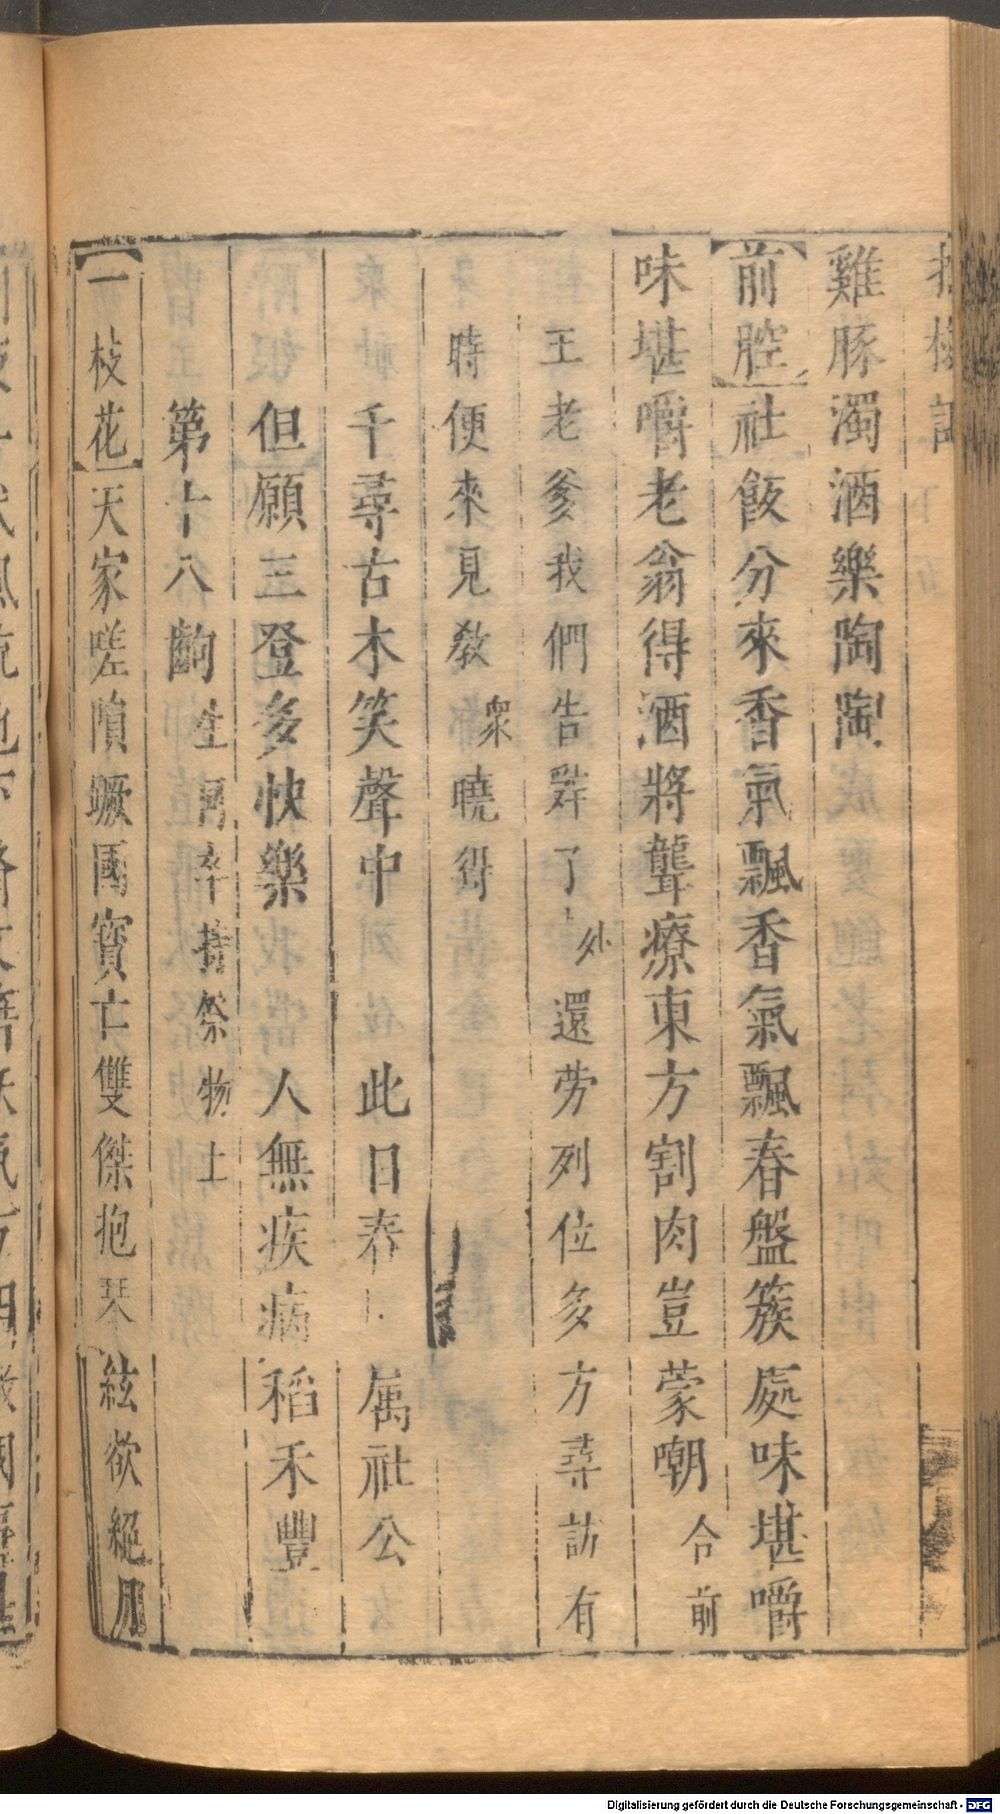 雞豚濁酒樂陶陶
前腔 社飯分來香氣飄香氣飄春盤簇處味堪嚼
味堪嚼老翁得酒將聾療東方割肉豈蒙嘲 合前
王老爹我們告辭了 外 還勞列位多方尋訪有
時便來見教 衆 曉得
千尋古木笑聲中 此日春 屬社公
但願三登多快樂 人無疾病稻禾豐
第十八齣 生 卒持祭物上
一枝花 天家嗟隕蹶國寶亡雙傑抱琴絃欲絕
Digitalisierung gefördert durch die Deutsche Forschungsgemeinschaft - DFG